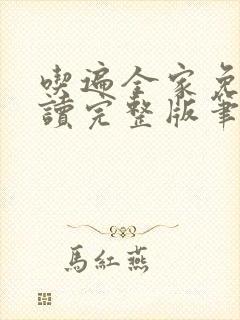 喫遍全家免
讀完整版筆
馬紅燕